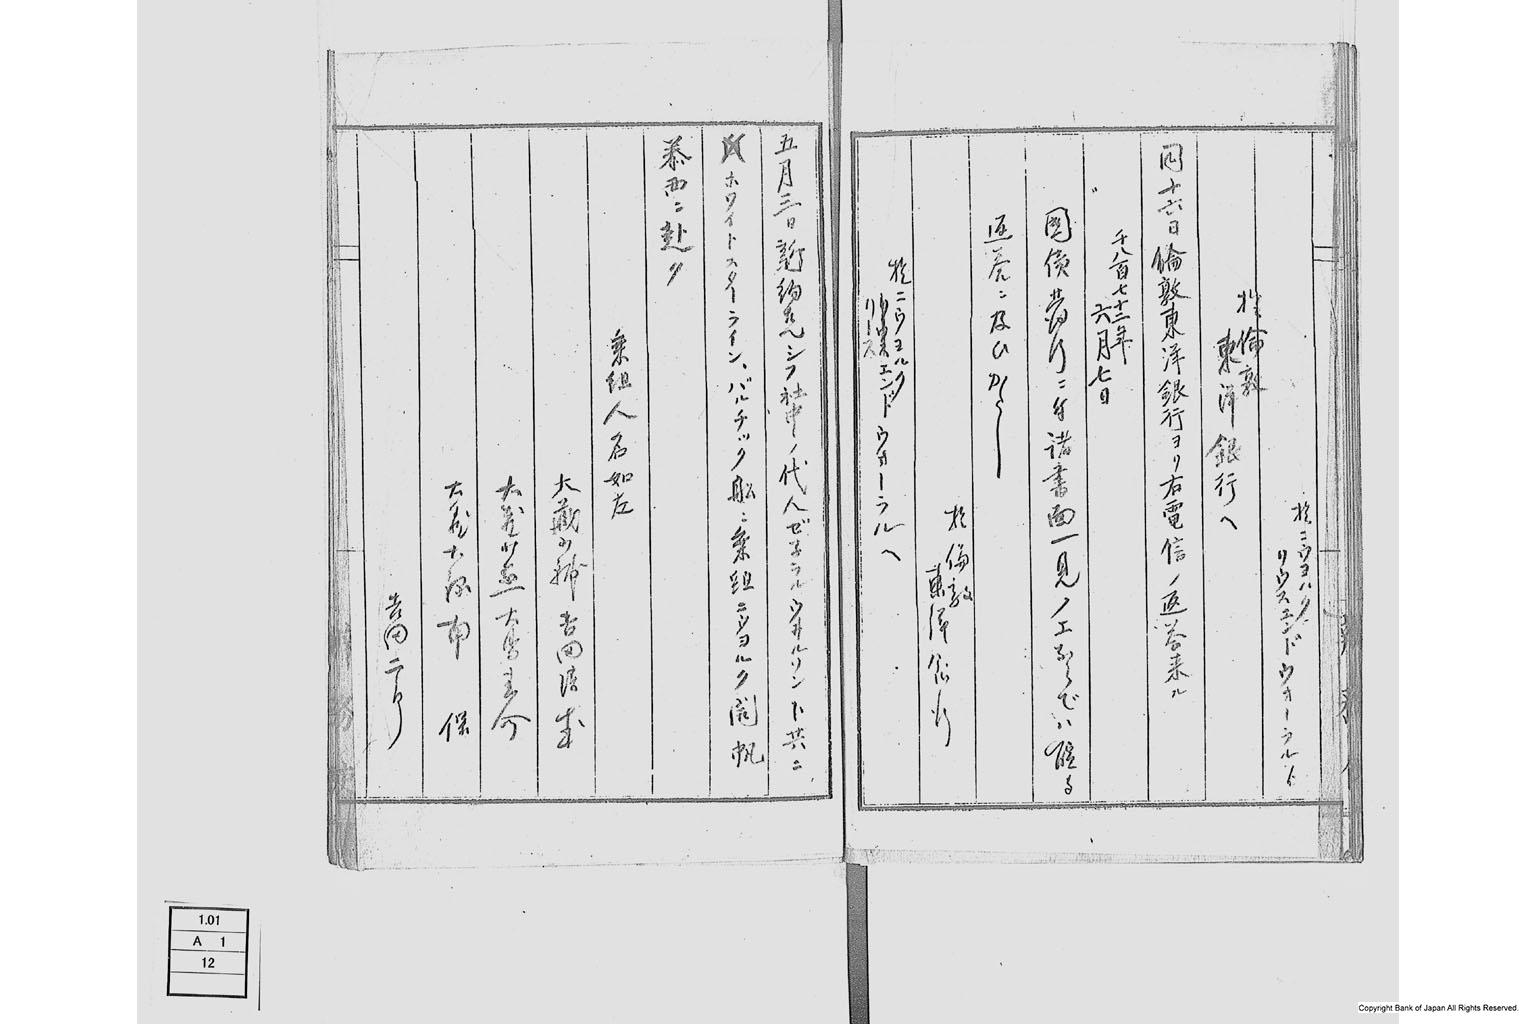 於ニウヨルク
リウスエンドウオーラルト
於倫敦
東洋銀行へ
同十六日倫敦東洋銀行ヨリ右電信ノ返答来ル
千八百七十二年
六月七日
國債 ニ付諸書面一見ノ上
返答ニ及ひかたし
於倫敦
東洋銀行
於ニウヨルク
リース
エンドウオーラルへ
五月三日新約克シフ社中ノ代人ゼネラルウリルソント共ニ
ホワイトスターライン、バルチック船ニ乗組ニウヨルク開帆
泰西ニ赴ク
乗組人名如左
大蔵少輔吉田清成
大蔵 大鳥圭介
大蔵大録南保
吉田二郎
1.01
A 1
12
Copyright Bank of Japan All Rights Reserved.